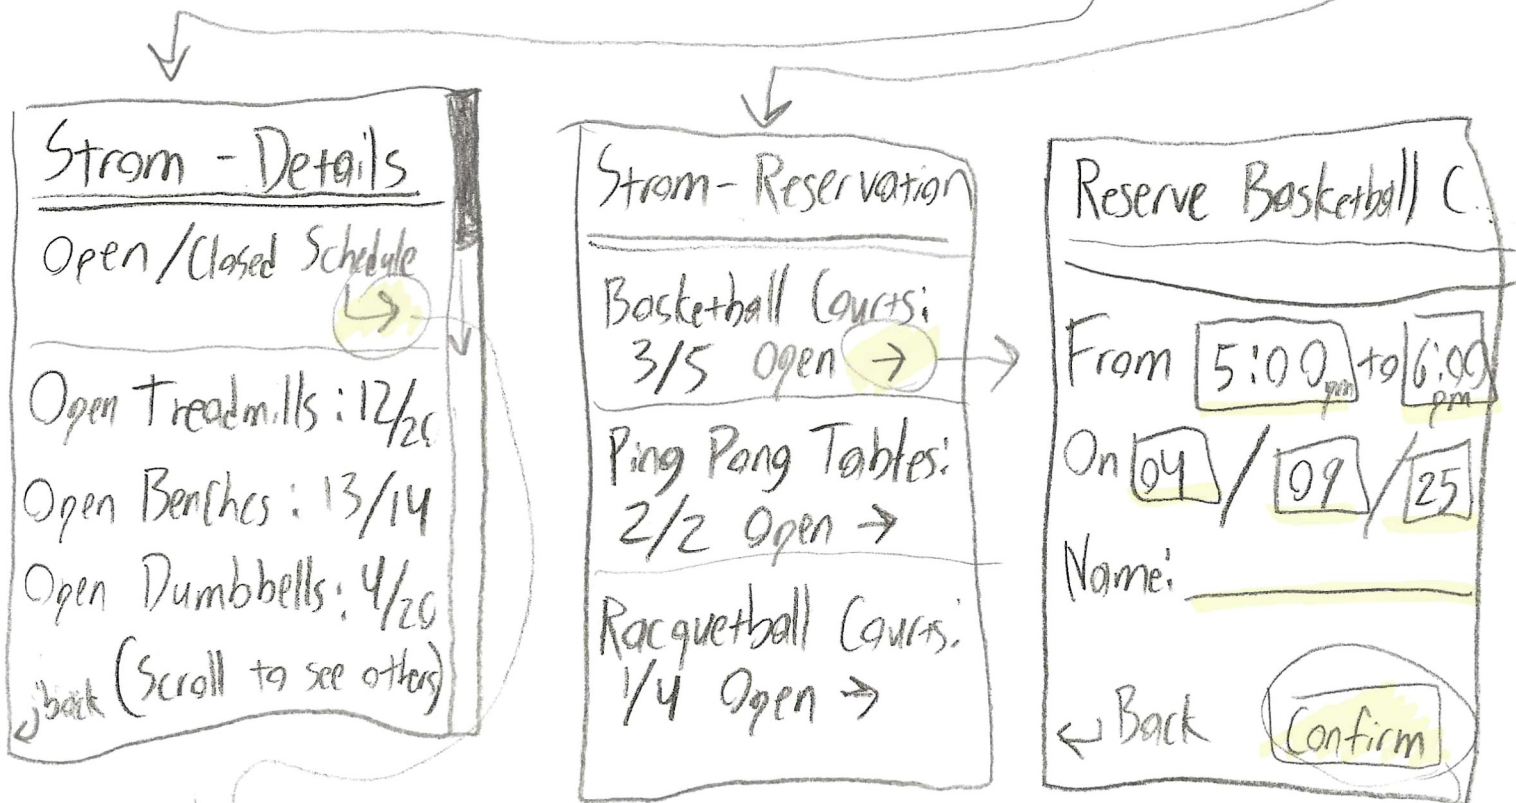 Strom - Details
Open/Closed Schedule
Open Treadmills: 12/20
Open Benches: 13/14
Open Dumbbells: 4/20
back (Scroll to see others)
Strom - Reservation
Basketball Courts:
3/5 Open →
Ping Pong Tables:
2/2 Open →
Racquetball Courts:
1/4 Open →
Reserve Basketball C...
From 5:00 pm to 6:00 pm
On 04 / 09 / 25
Name:
Back Confirm